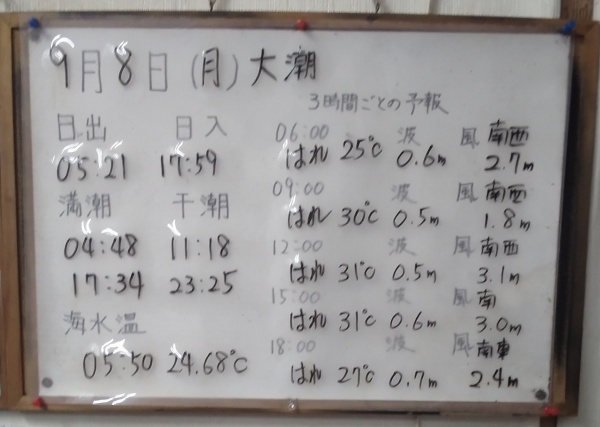 9月8日(月)大潮
日出 日入
05:21 17:59
満潮 干潮
04:48 11:18
17:34 23:25
海水温
05:50 24.68℃
3時間ごとの予報
06:00 波 風 南西
はれ 25℃ 0.6m 2.7m
09:00 波 風 南西
はれ 30℃ 0.5m 1.8m
12:00 波 風 南西
はれ 31℃ 0.5m 3.1m
15:00 波 風 南
はれ 31℃ 0.6m 3.0m
18:00 波 風 南東
はれ 27℃ 0.7m 2.4m